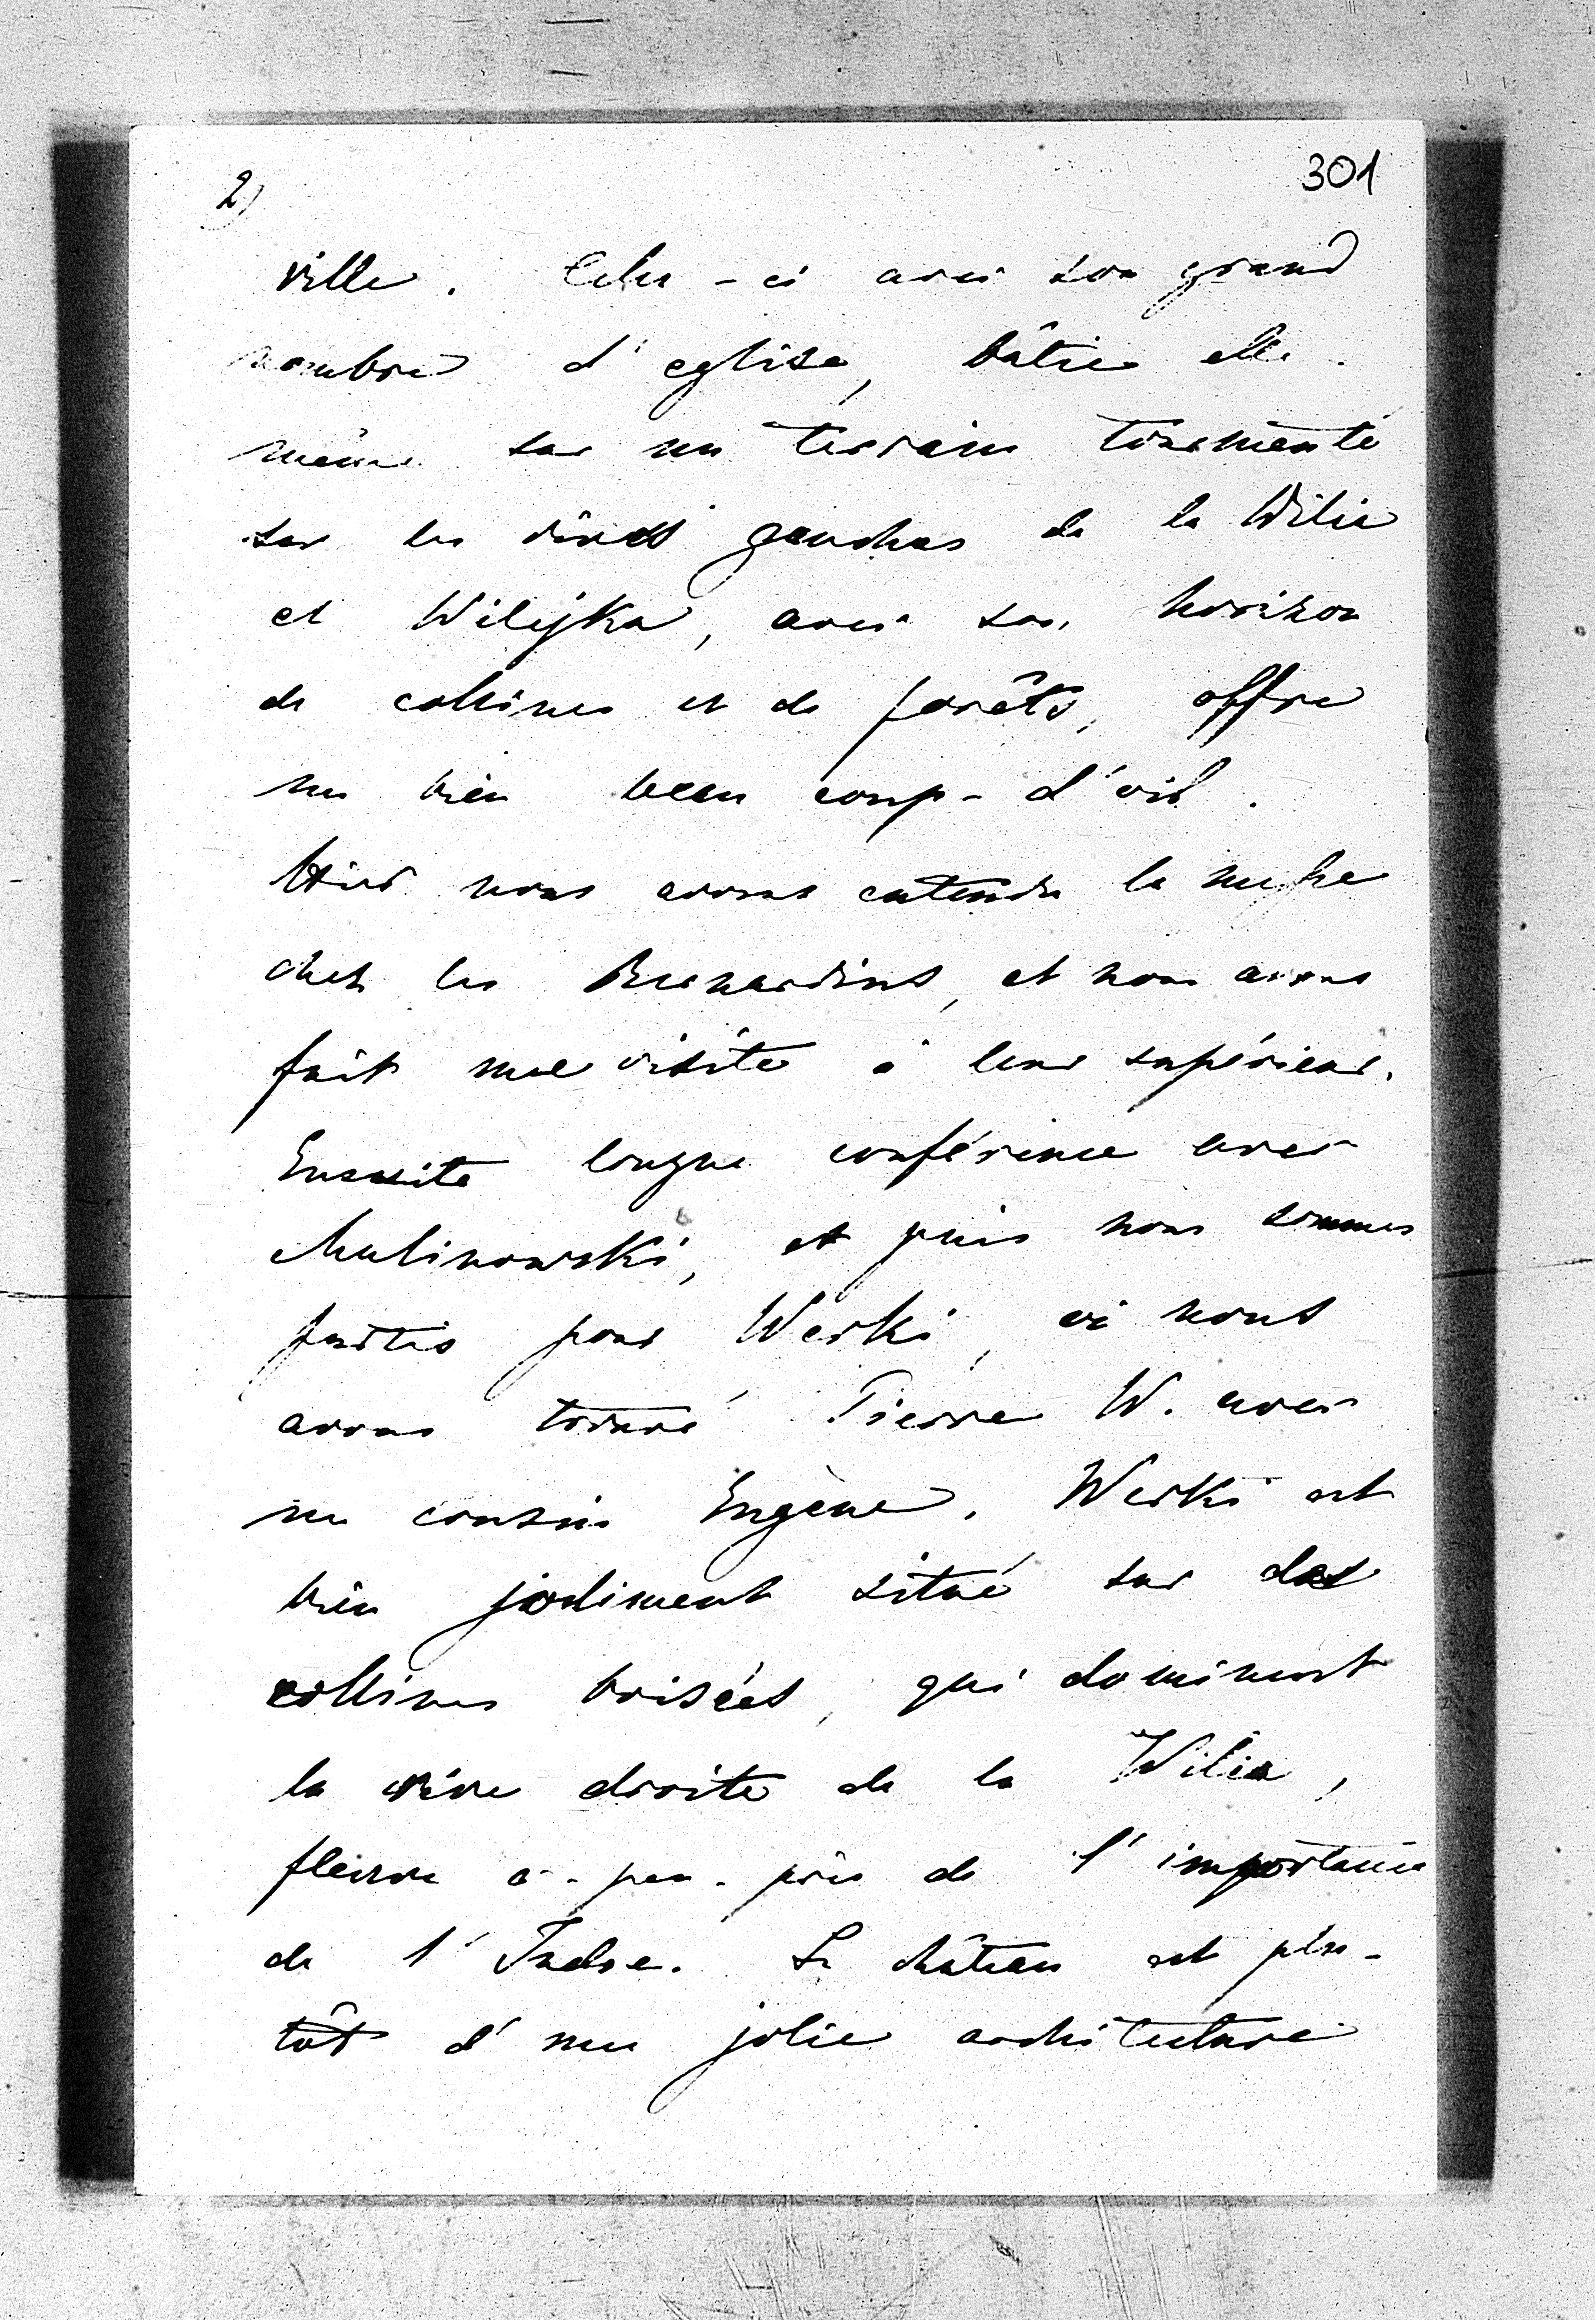 2)
301
ville. Celle-ci avec son grand
nombre d'eglise, bâtie elle-
même sur un terrain tourmenté
sur les rives gauches de la Wilia
et Wilejka, avec son horizon
de collines et de forêts, offre
un bien beau coup-d'œil.
Hier nous avons entendu la messe
chez les Bernardins, et nous avons
fait une visite à leur supérieur.
Ensuite longue conférence avec
Malinowski, et puis nous sommes
partis pour Werki, où nous
avons trouvé Pierre W. avec
un cousin Eugène. Werki est
bien joliment situé sur des
collines boisées, qui dominent
la rive droite de la Wilia,
fleuve à-peu-près de l'importance
de l'Indre. Le château est plu-
tôt d'une jolie architecture